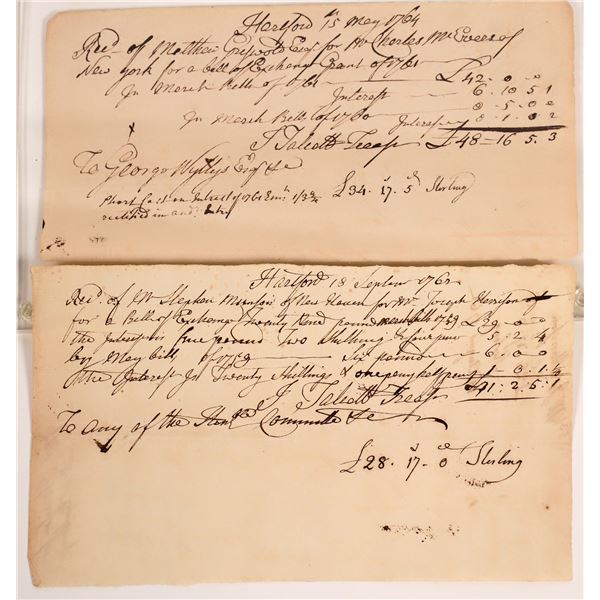 Hartford 15th May 1764
Recd. of Matthew Griswold Esqr. for Mr Charles McEvers of
New York for a bill of Exchange Grant of 1761
In March Bills of 1761 £42 . 0 . 0
Interest 6 . 10 . 5 . 1
In March Bills of 1760 0 . 5 . 0 . 0
Interest 0 . 1 . 0 . 2
J Talcott Treasr £48 - 16 5 . 3
To George Wyllys Esqr &c
£34 . 17 . 5 Sterling
Short Cast on Intrest of 1761 1/3
Hartford 18 Septemr 1762
Recd. of Mr Stephen Munson of New Haven for Mr. Joseph Harrison
for a Bill of Exchange Twenty Nine pound 1759 £29 . 0 . 0
the Interest is five pound Two Shilling & four pence 5 . 2 . 4
by May bill of 1759 Six pound 6 . 0 . 0
& the Interest Is Twenty Shillings & one penny half penny 1 . 0 . 1 .
J Talcott Treasr £41 : 2 : 5 : 1
To any of the Committee &c
£28 . 17 . 0 Sterling